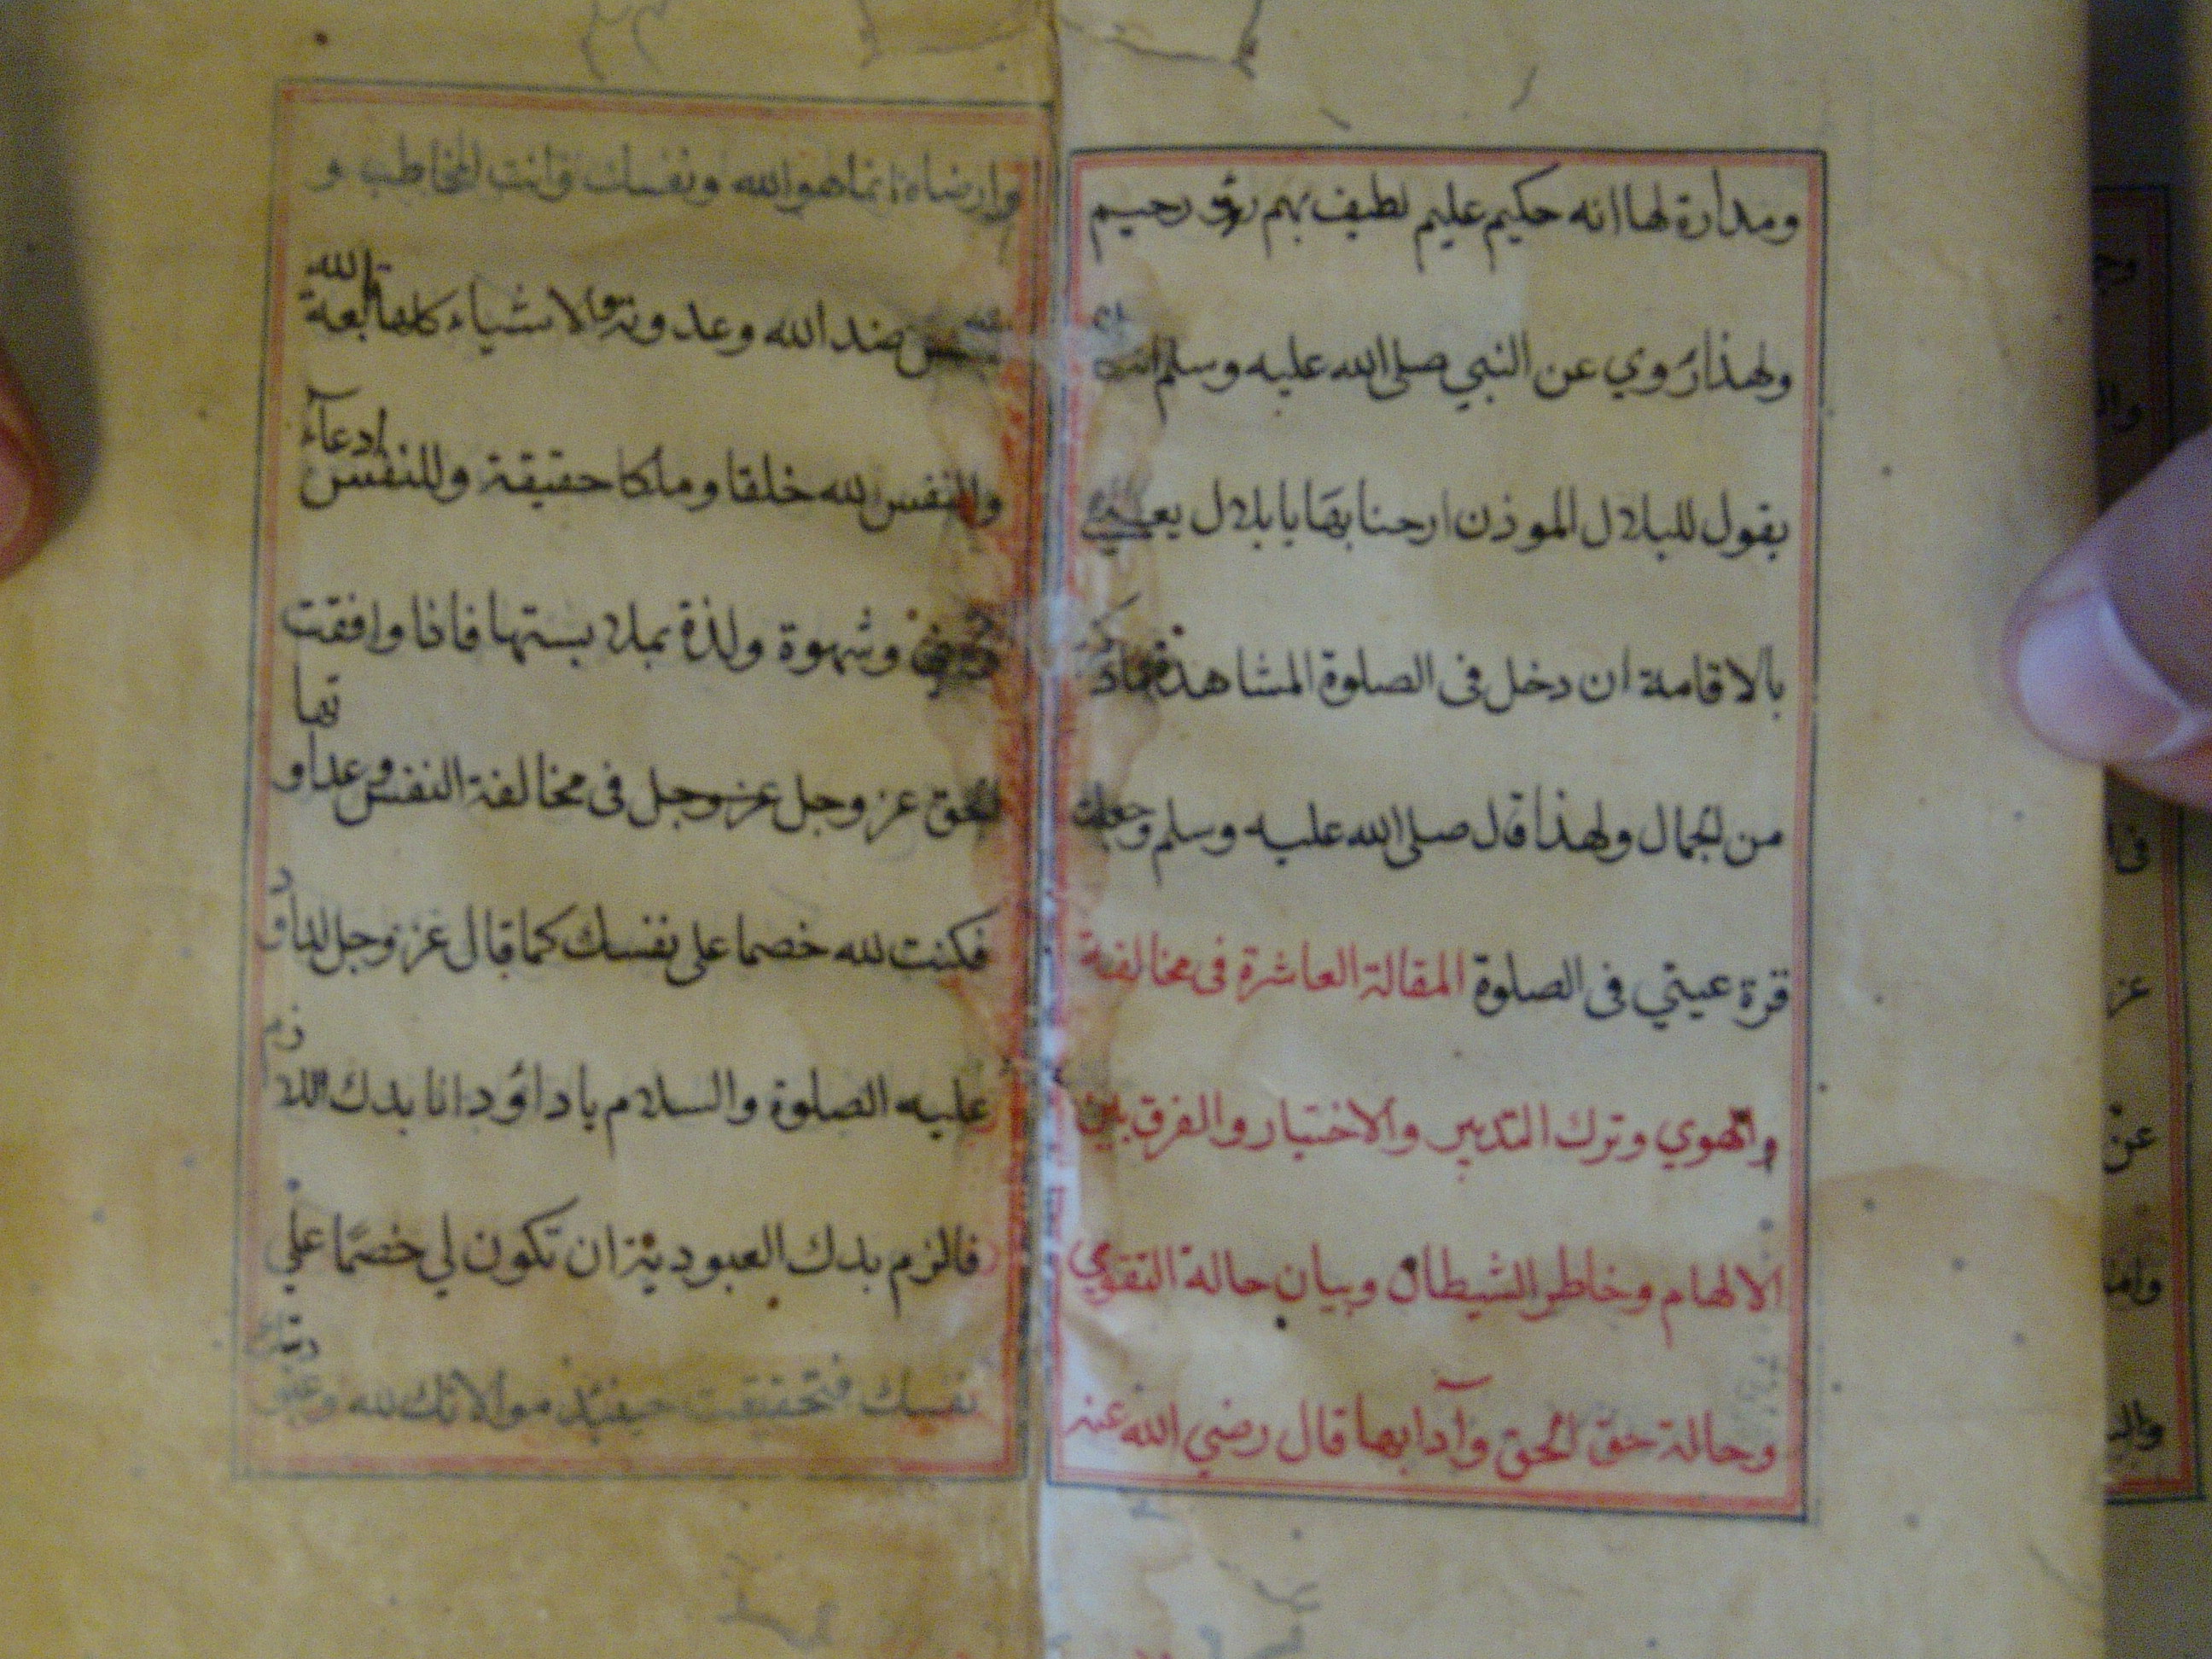 ومدارة لها انه حكيم عليم لطيف بهم رؤف رحيم
ولهذا روي عن النبي صلى الله عليه وسلم انه
يقول للبلال الموذن ارحنا بها يا بلال يعني
بالاقامة ان دخل فى الصلوة المشاهدة
من الجمال ولهذا قال صلى الله عليه وسلم وجعلت
قرة عيني فى الصلوة المقالة العاشرة فى مخالفة
والهوي وترك التدبير والاختيار والفرق بين
الالهام وخاطر الشيطان وبيان حالة التقوي
وحالة حق الحق وآدابها قال رضي الله عنه
وارضاه انما هو الله ونفسك وانت المخاطب و
ضد الله وعدوته والاشياء كلها تابعة لله
والنفس لله خلقا وملكا حقيقة وللنفس ادعآء
وشهوة ولذة بملابستها فاذا وافقت
الحق عز وجل عز وجل فى مخالفة النفس وعداوتها
فكنت لله خصما على نفسك كما قال عز وجل لداود
عليه الصلوة والسلام يا داؤد انا بدك اللازم
فالزم بدك العبودية ان تكون لي خصمًا علي
نفسك فتحقيقت حينئذ موالاتك لله